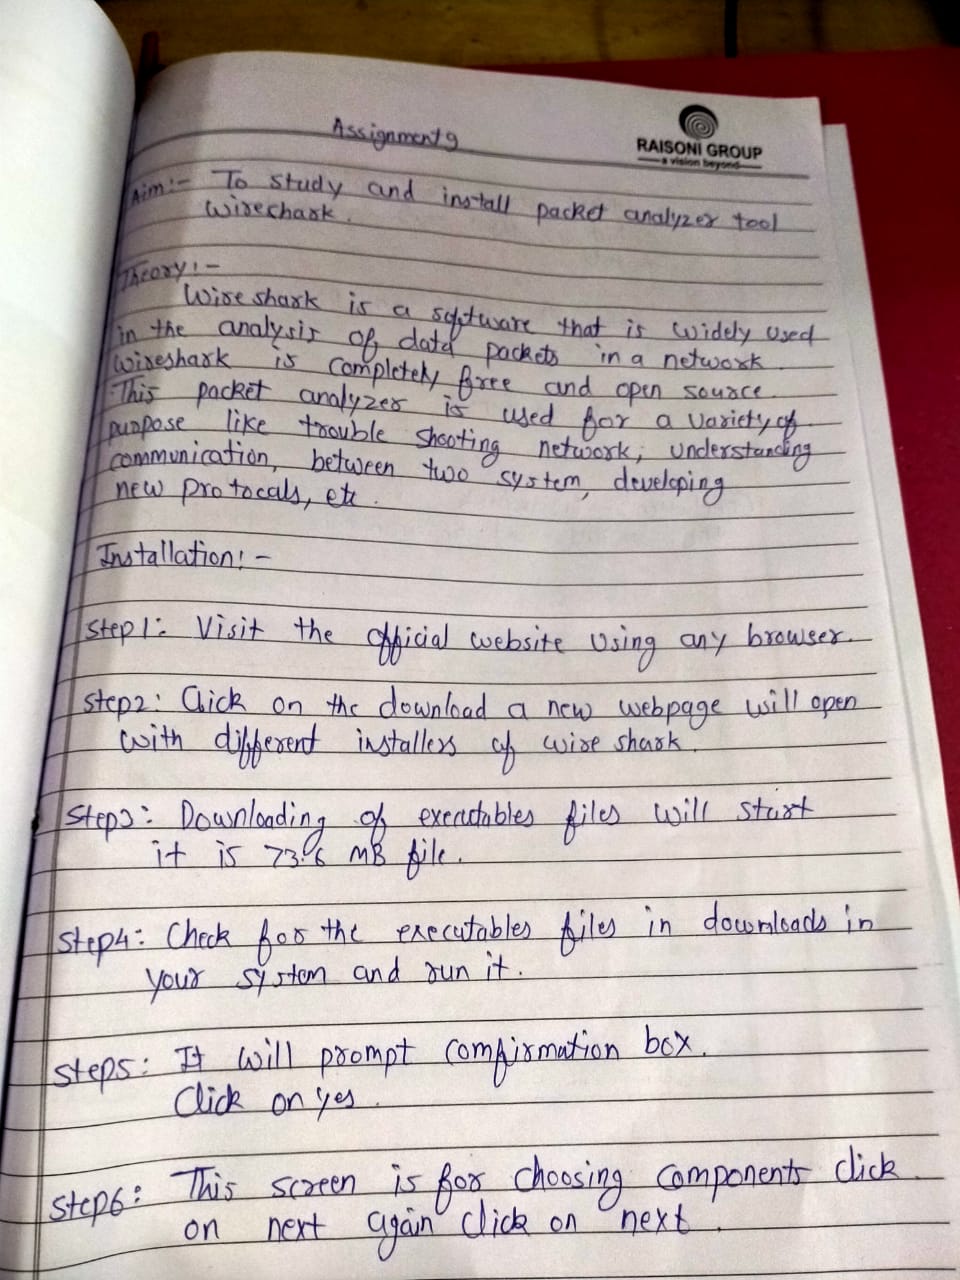 Assignment 9
RAISONI GROUP
a vision beyond
Aim:- To study and install packet analyzer tool
Wirechark.
Theory:-
Wire shark is a software that is widely used
in the analysis of data packets in a network.
Wireshark is completely free and open source.
This packet analyzer is used for a variety of
purpose like trouble shooting network, understanding
communication, between two system, developing
new protocals, etc.
Installation:-
Step1: Visit the official website using any browser.
Step2: Click on the download a new webpage will open
with different installers of wire shark.
Step3: Downloading of executables files will start
it is 73.6 MB file.
Step4: Check for the executables files in downloads in
your system and run it.
Step5: It will prompt comfirmation box.
Click on yes.
Step6: This screen is for choosing components click
on next again click on next.